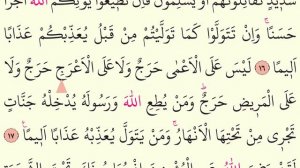 شَد۪يدٍ تُقَاتِلُونَهُمْ اَوْ يُسْلِمُونَۚ فَاِنْ تُط۪يعُوا يُؤْتِكُمُ اللّٰهُ اَجْرًا
حَسَنًاۚ وَاِنْ تَتَوَلَّوْا كَمَا تَوَلَّيْتُمْ مِنْ قَبْلُ يُعَذِّبْكُمْ عَذَابًا
اَل۪يمًا ﴿١٦﴾ لَيْسَ عَلَى الْاَعْمٰى حَرَجٌ وَلَا عَلَى الْاَعْرَجِ حَرَجٌ وَلَا
عَلَى الْمَر۪يضِ حَرَجٌۜ وَمَنْ يُطِعِ اللّٰهَ وَرَسُولَهُ يُدْخِلْهُ جَنَّاتٍ
تَجْر۪ي مِنْ تَحْتِهَا الْاَنْهَارُۚ وَمَنْ يَتَوَلَّ يُعَذِّبْهُ عَذَابًا اَل۪يمًا ﴿١٧﴾